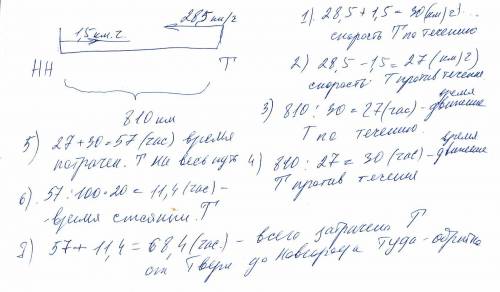 28,5 км/г
1,5 км.г
НН
Т
810 км
1). 28,5 + 1,5 = 30 (км/г) ..
скорость Т по течению
2) 28,5 - 1,5 = 27 (км/г)
скорость Т против течения
3) 810 : 30 = 27 (час) - время движение
Т по течению.
4) 810 : 27 = 30 (час) - время движение
Т против течения
5) 27 + 30 = 57 (час) время
потрачен. Т на весь путь
6) 57 : 100 · 20 = 11,4 (час) -
- время стоянки. Т
8) 57 + 11,4 = 68,4 (час.) - всего затрачена Т
от Твери до Новгорода туда - обратно